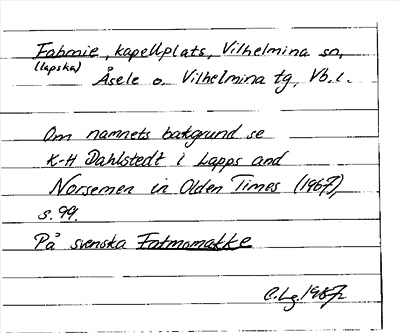 Fahmie, kapellplats, Vilhelmina sn,
(lapska) Åsele o. Vilhelmina tg, Vb. l.
Om namnets bakgrund se
K-H Dahlstedt i Lapps and
Norsemen in Olden Times (1967),
s. 99.
På svenska Fatmomakke
C. Lg. 1967